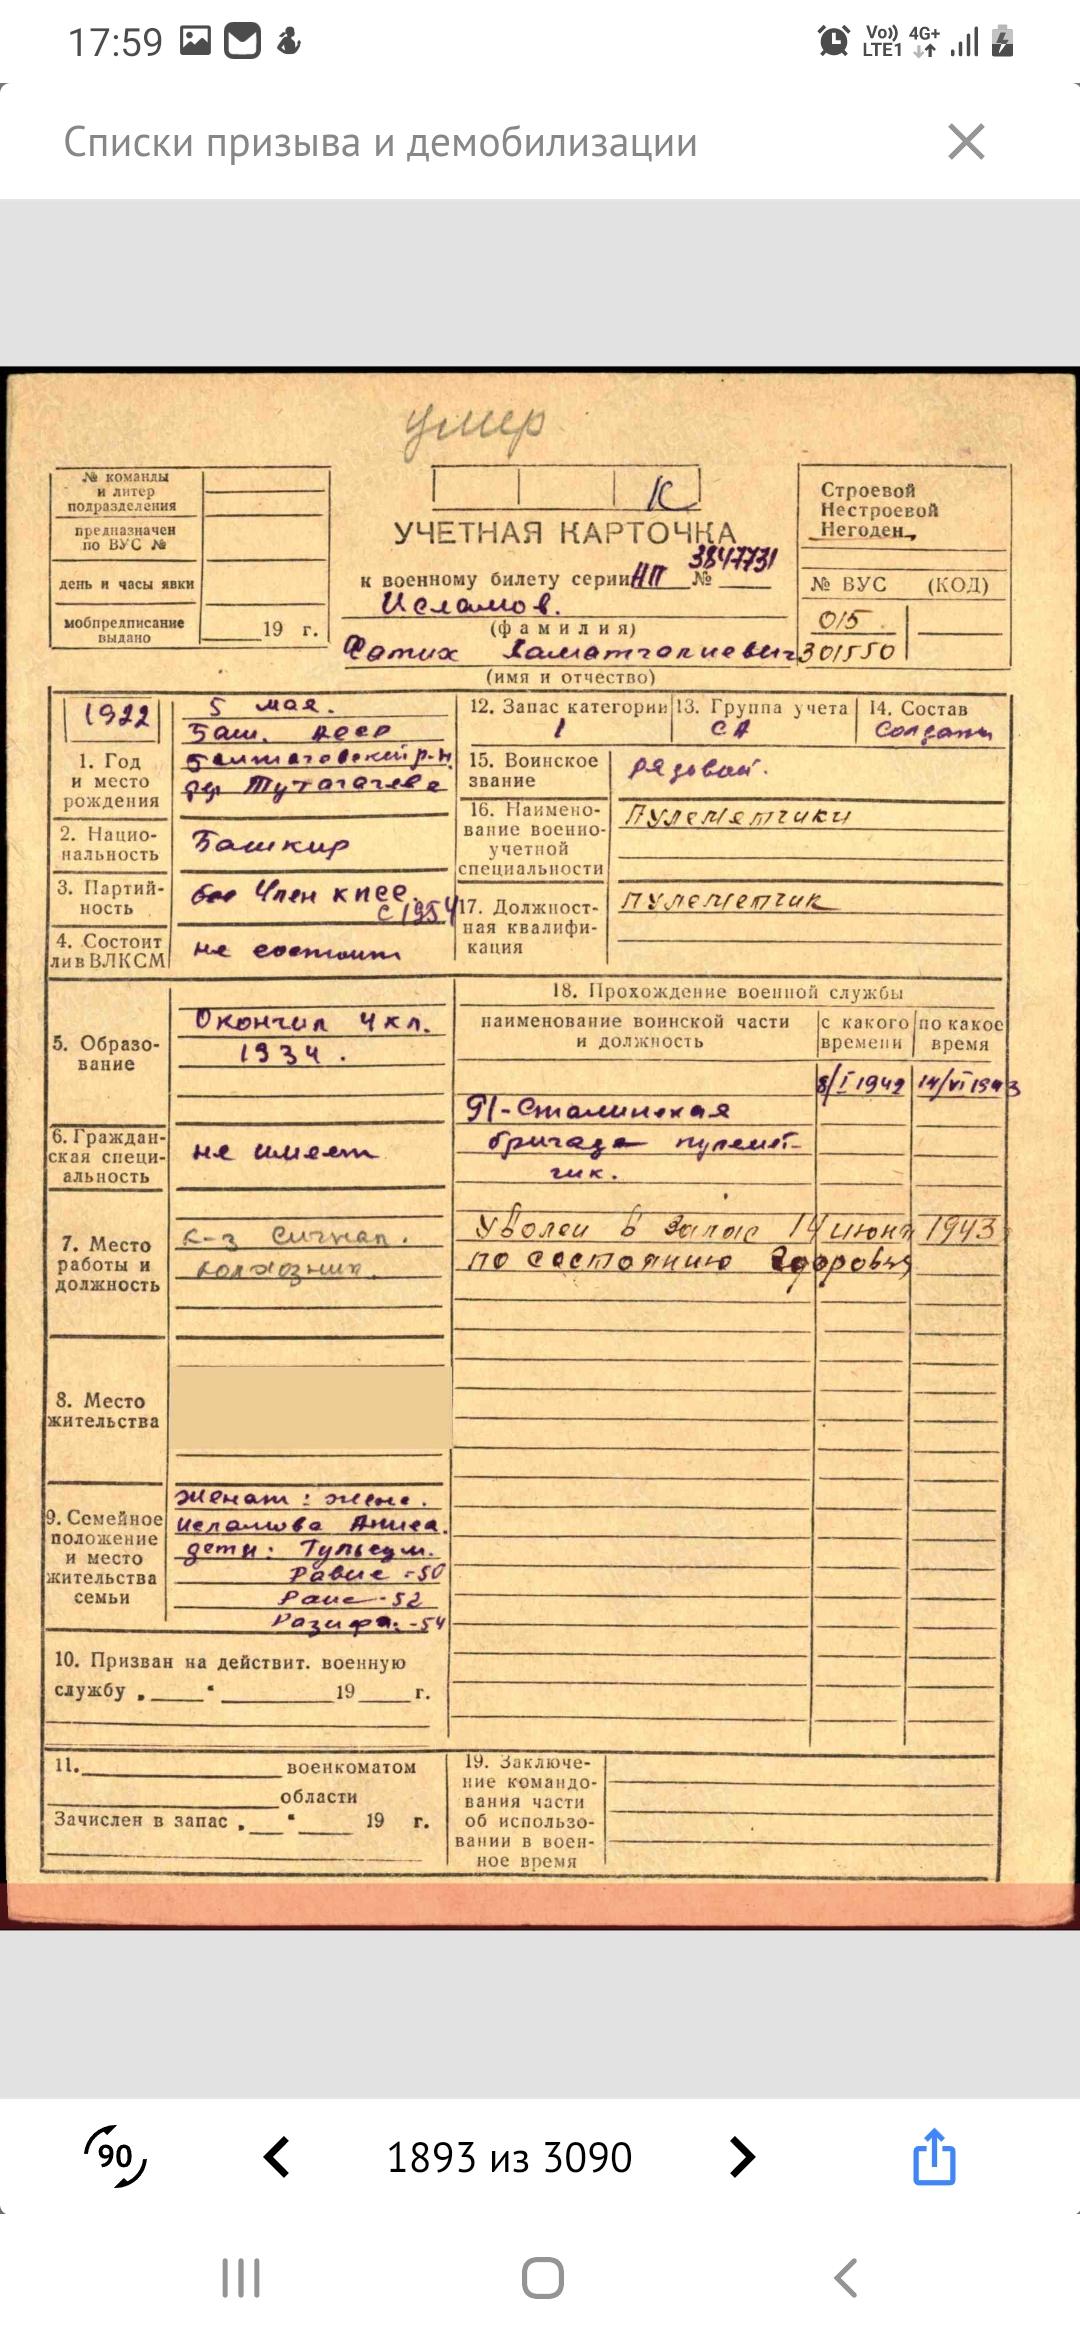 17:59
Vo)) LTE1 4G+
Списки призыва и демобилизации
умер
№ команды и литер подразделения
предназначен по ВУС №
день и часы явки
мобпредписание выдано
19 г.
К
УЧЕТНАЯ КАРТОЧКА
к военному билету серии НП № 3847731
Исламов.
(фамилия)
Фатих
(имя и отчество)
Строевой
Нестроевой
Негоден
№ ВУС (КОД)
015
301550
1922
1. Год и место рождения
5 мая.
Баш. АССР
р-н
дер
2. Национальность
Башкир
3. Партийность
Член КПСС
с 1954
4. Состоит ли в ВЛКСМ
не состоит
12. Запас категории
1
13. Группа учета
СА
14. Состав
Солдаты
15. Воинское звание
рядовой.
16. Наименование военно-учетной специальности
Пулеметчики
17. Должностная квалификация
пулеметчик
5. Образование
Окончил 4 кл.
1934.
6. Гражданская специальность
не имеет
7. Место работы и должность
к-з Сигнал.
колхозник.
8. Место жительства
9. Семейное положение и место жительства семьи
женат: жена.
Исламова
дети:
-50
-52
-54
10. Призван на действит. военную
службу „ “ 19 г.
11. военкоматом
области
Зачислен в запас „ “ 19 г.
18. Прохождение военной службы
наименование воинской части и должность
с какого времени
по какое время
8/I 1942 14/VI 1943
91-Сталинская
бригада пулемет-
чик.
Уволен в запас 14 июня 1943
по состоянию здоровья
19. Заключение командования части об использовании в военное время
90
1893 из 3090